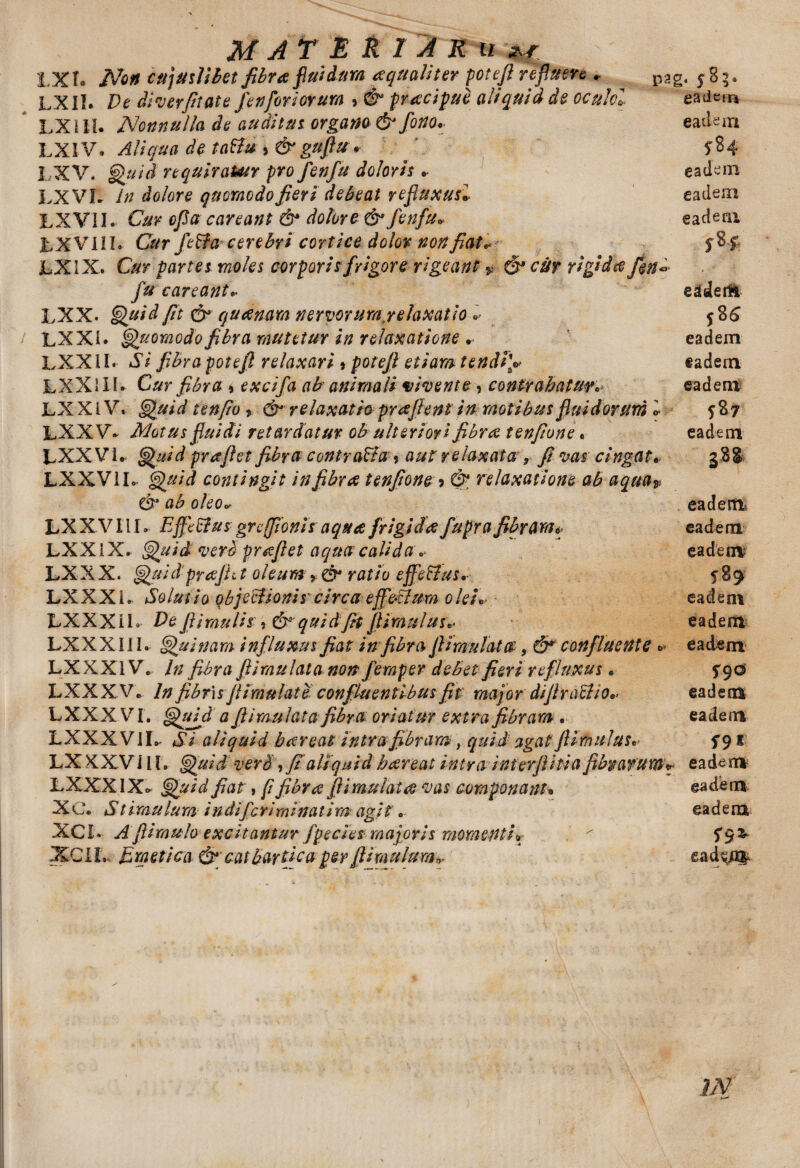 MATERIARUM
LXI. Non cujuslibet fibræ fluidum æqualiter potest refluere. pag. 583.
LXII. De diversitate sensoriorum, & præcipuè aliquid de oculo. eadem
LXIII. Nonnulla de auditus organo & sono. eadem
LXIV. Aliqua de tactu, & gustu. 584
LXV. Quid requiratur pro sensu doloris. eadem
LXVI. In dolore quomodo fieri debeat refluxus. eadem
LXVII. Cur ossa careant & dolore & sensu. eadem
LXVIII. Cur secta cerebri cortice dolor non fiat. 585
LXIX. Cur partes moles corporis frigore rigeant, & cùr rigidæ sen-
su careant. eadem
LXX. Quid sit & quænam nervorum relaxatio. 586
LXXI. Quomodo fibra mutetur in relaxatione. eadem
LXXII. Si fibra potest relaxari, potest etiam tendi. eadem
LXXIII. Cur fibra, excisa ab animali vivente, contrahatur. eadem
LXXIV. Quid tensio, & relaxatio præstent in motibus fluidorum. 587
LXXV. Motus fluidi retardatur ob ulteriori fibræ tensione. eadem
LXXVI. Quid præstet fibra contracta, aut relaxata, si vas cingat. 388
LXXVII. Quid contingit in fibræ tensione, & relaxatione ab aqua,
& ab oleo. eadem
LXXVIII. Effectus gressionis aquæ frigidæ supra fibram. eadem
LXXIX. Quid verò præstet aqua calida. eadem
LXXX. Quid præstet oleum, & ratio effectus. 589
LXXXI. Solutio objectionis circa effectum olei. eadem
LXXXII. De stimulis, & quid sit stimulus. eadem
LXXXIII. Quinam influxus fiat in fibra stimulata, & confluente. eadem
LXXXIV. In fibra stimulata non semper debet fieri refluxus. 590
LXXXV. In fibris stimulatè confluentibus fit major distractio. eadem
LXXXVI. Quid a stimulata fibra oriatur extra fibram. eadem
LXXXVII. Si aliquid hæreat intra fibram, quid agat stimulus. 591
LXXXVIII. Quid verò, si aliquid hæreat intra interstitia fibrarum. eadem
LXXXIX. Quid fiat, si fibræ stimulatæ vas componant. eadem
XC. Stimulum indiscriminatim agit. eadem
XCI. A stimulo excitantur species majoris momenti. 592
XCII. Emetica & cathartica per stimulum. eadem
IN